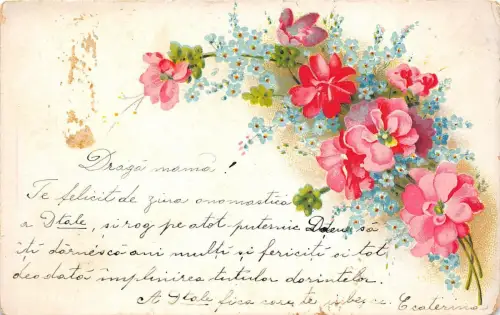 Dragă mamă!
Te felicit de ziua onomastica
a Dtale, și rog pe atot puternic Ddeu să
iți dărnéscă ani mulți și fericiti și tot
deodată împlinirea tuturor dorintelor.
A Dtale fiica care te iubesce. Ecaterina